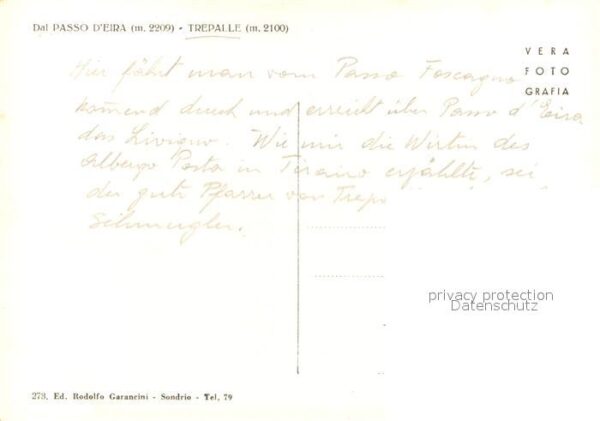 Dal PASSO D'EIRA (m. 2209) - TREPALLE (m. 2100)
VERA
FOTO
GRAFIA
Hier fährt man vom Passo Foscagno
komend durch und erreicht über Passo d'Eira
das Livigno. Wie mir die Wirtin des
Albergo Posta in Tirano erzählte, sei
der gute Pfarrer von Trepa
Schmugler.
privacy protection
Datenschutz
273, Ed. Rodolfo Garancini - Sondrio - Tel, 79